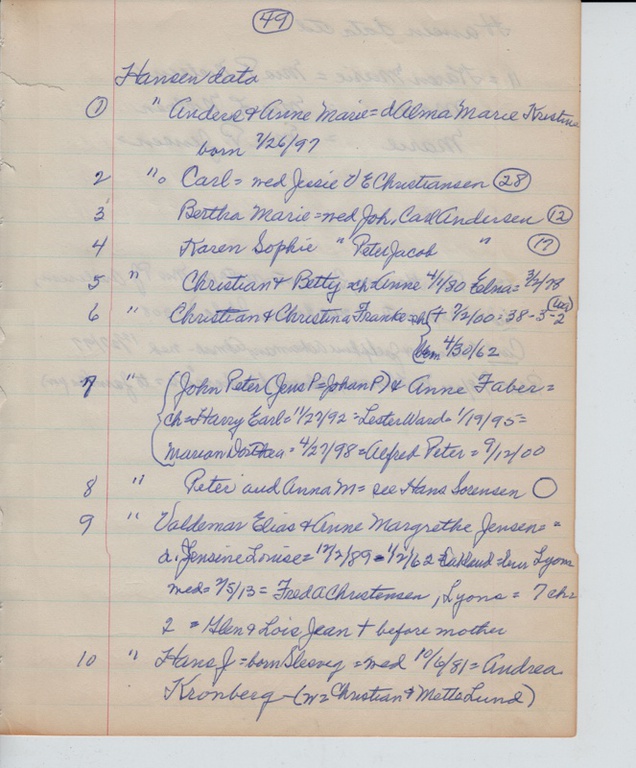 49
Hansen data
1 " Anders & Anne Marie = d Alma Marie Kristina
born 7/26/97
2 " Carl = wed Jessie V E Christiansen 28
3 Bertha Marie = wed Joh. Carl Andersen 12
4 Karen Sophie " Peter Jacob " 17
5 " Christian & Betty = ch Anne 4/4/80 Edna = 3/2/78
6 " Christian & Christina Franke = ch † 7/2/00 = 38-5-2
born 4/30/62
7 " (John Peter (Jens P = Johan P) & Anne Faber =
ch = Harry Earl = 11/27/92 = Lester Ward = 1/19/95 =
Marion Dorthea = 4/27/98 = Alfred Peter = 9/12/00
8 " Peter and Anna M = see Hans Sorensen
9 " Valdemar Elias & Anne Margrethe Jensen =
d. Jensine Louise = 12/2/89 = 1/2/62 = Oakland = Lyons
wed = 7/5/13 = Fred A Christensen, Lyons = 7 ch =
2 = Glen & Lois Jean † before mother
10 " Hans J = born Slesvig = wed 10/6/81 = Andrea
Kronberg - (w = Christian & Mette Lund)